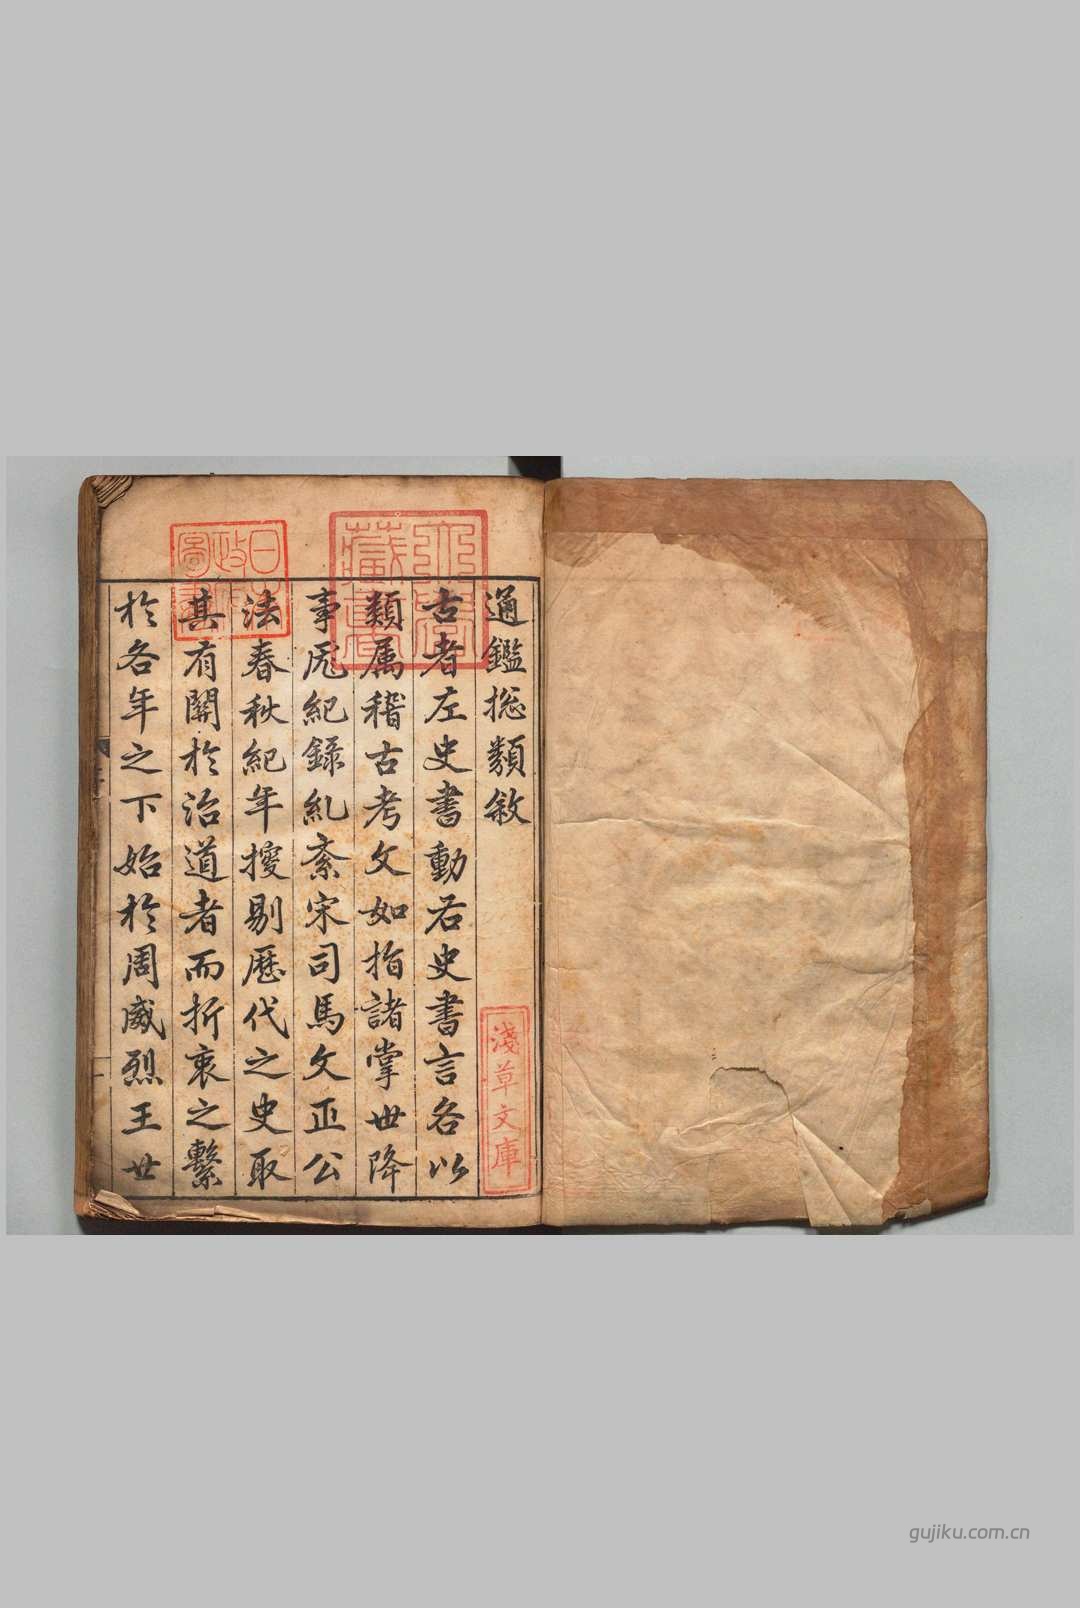 通鑑捴類敘
古者左史書動右史書言各以
類属稽古考文如指諸掌世降
事厖紀錄乱紊宋司馬文正公
法春秋紀年㨕剔歷代之史取
其有關於治道者而折衷之繫
於各年之下始於周威烈王世
淺草文庫
日本政府圖書
gujiku.com.cn